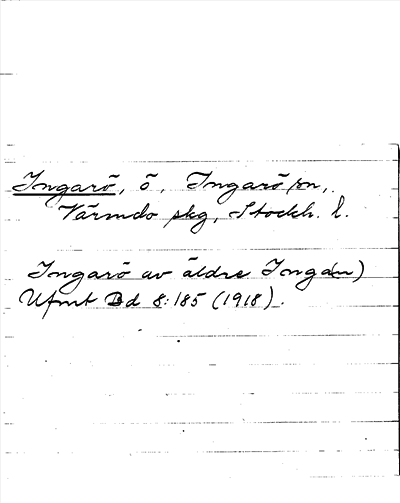 Ingarö, ö, Ingarö sn,
Värmdö skg, Stockh. l.
Ingarö av äldre Inga(n)
Ufmt Bd 8:185 (1918).